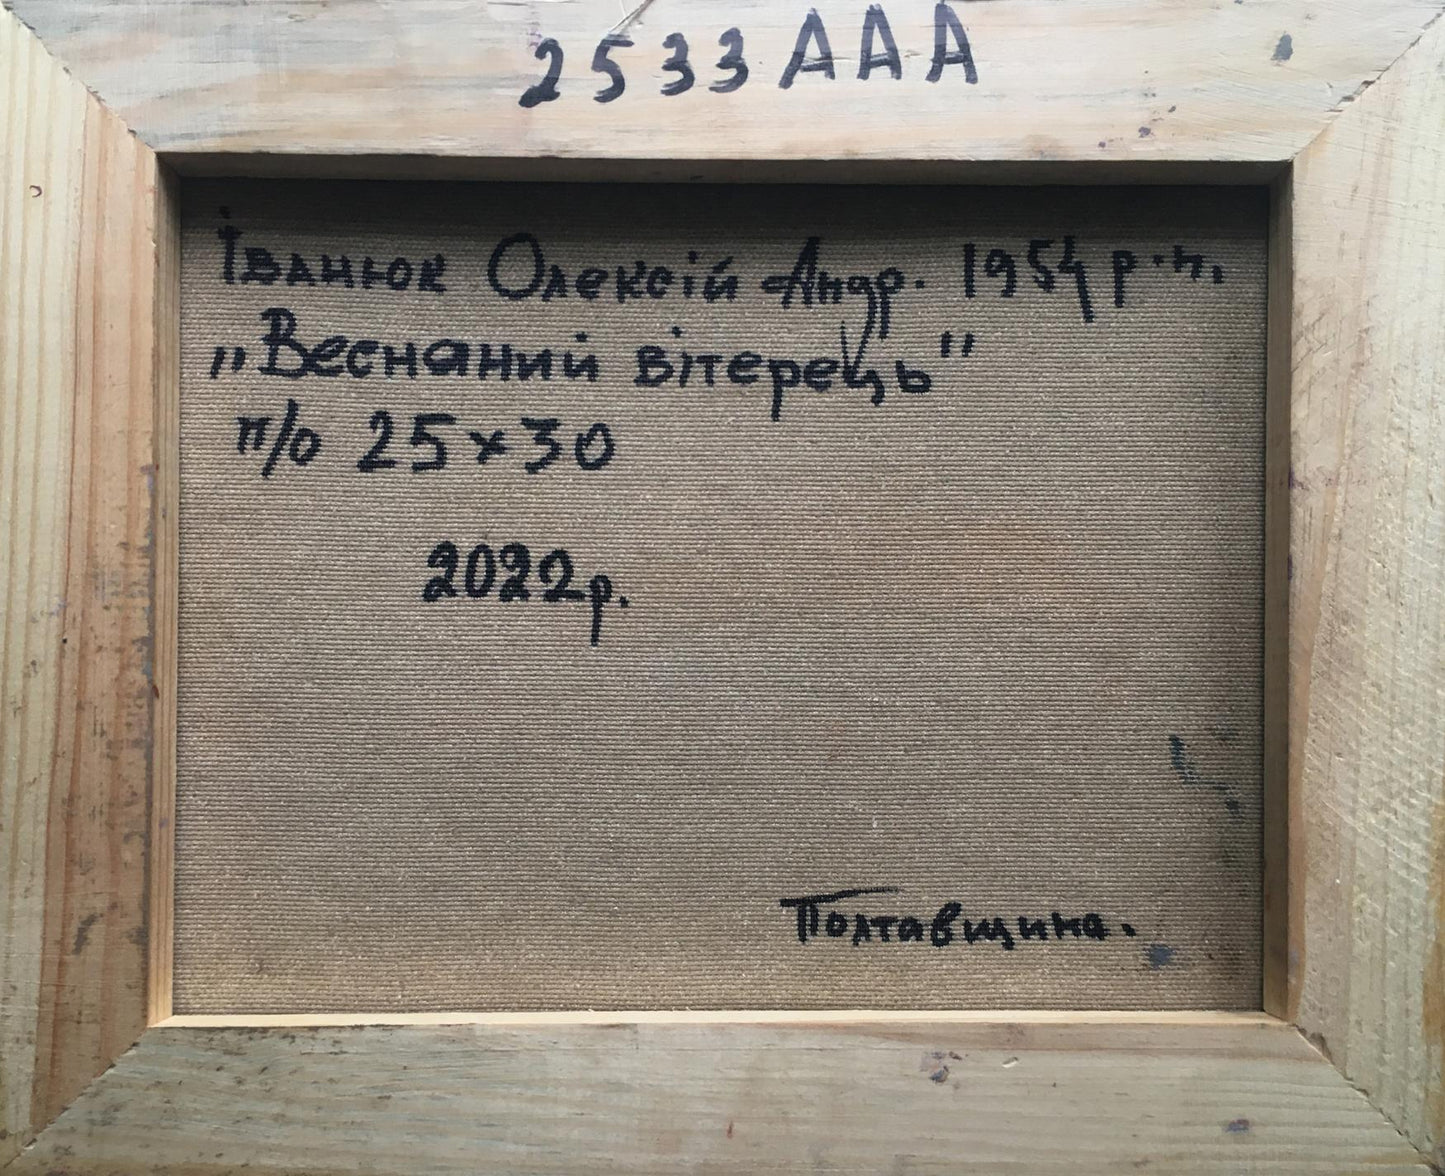 2533AAA
Іванюк Олексій Андр. 1954 р.н.
„Весняний вітерець"
п/о 25×30
2022р.
Полтавщина.